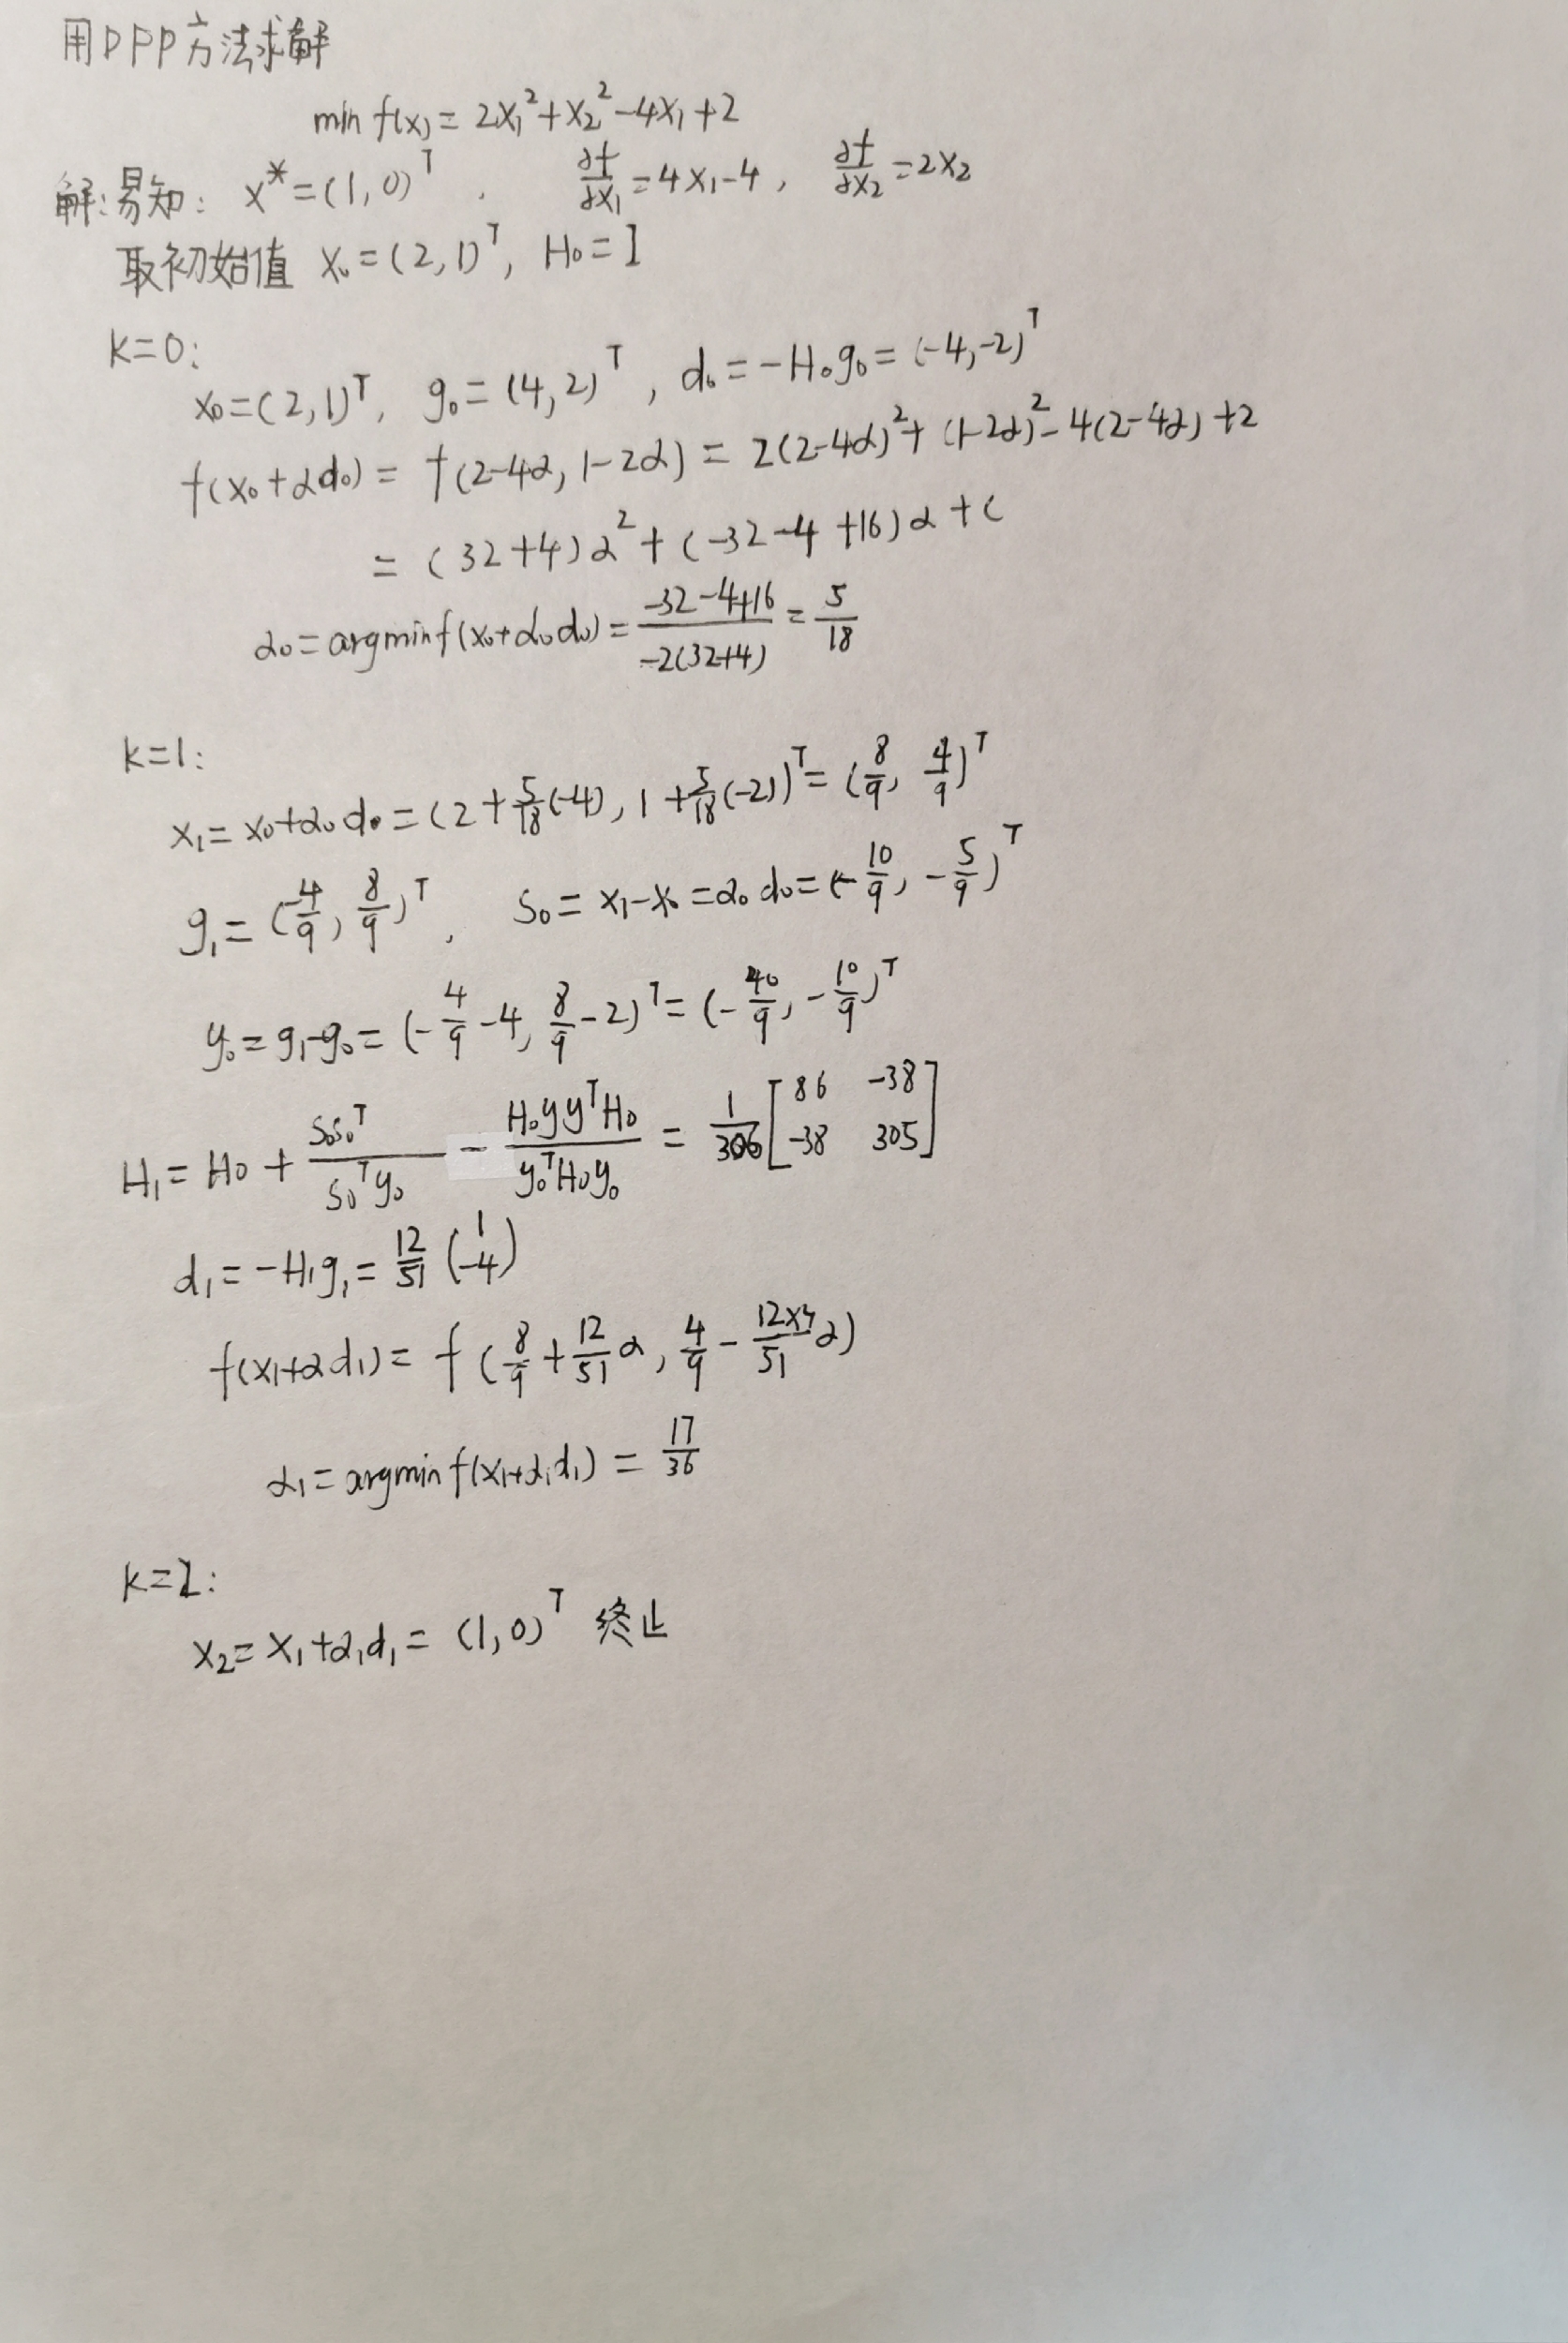 用DFP方法求解
min f(x) = 2x₁² + x₂² - 4x₁ + 2
解:易知: x* = (1, 0)ᵀ . ∂f/∂x₁ = 4x₁-4, ∂f/∂x₂ = 2x₂
取初始值 x₀ = (2, 1)ᵀ, H₀ = I
k=0:
x₀ = (2, 1)ᵀ, g₀ = (4, 2)ᵀ, d₀ = -H₀g₀ = (-4, -2)ᵀ
f(x₀+αd₀) = f(2-4α, 1-2α) = 2(2-4α)² + (1-2α)² - 4(2-4α) + 2
= (32+4)α² + (-32-4+16)α + c
α₀ = argminf(x₀+α₀d₀) = (-32-4+16)/(-2(32+4)) = 5/18
k=1:
x₁ = x₀+α₀d₀ = (2 + 5/18(-4), 1 + 5/18(-2))ᵀ = (8/9, 4/9)ᵀ
g₁ = (-4/9, 8/9)ᵀ, s₀ = x₁-x₀ = α₀d₀ = (-10/9, -5/9)ᵀ
y₀ = g₁-g₀ = (-4/9 - 4, 8/9 - 2)ᵀ = (-40/9, -10/9)ᵀ
H₁ = H₀ + s₀s₀ᵀ/s₀ᵀy₀ - H₀yyᵀH₀/y₀ᵀH₀y₀ = 1/306 [86 -38; -38 305]
d₁ = -H₁g₁ = 12/51 (1; -4)
f(x₁+αd₁) = f(8/9 + 12/51 α, 4/9 - 12×4/51 α)
α₁ = argminf(x₁+α₁d₁) = 17/36
k=2:
x₂ = x₁+α₁d₁ = (1, 0)ᵀ 终止